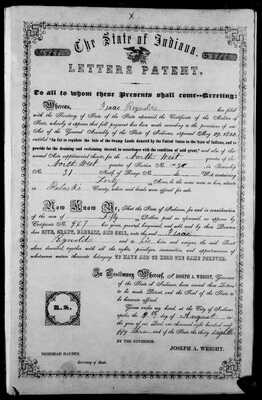 The State of Indiana.
LETTERS PATENT.
To all to whom these Presents shall come—Greeting:
Whereas, Isaac Reynolds has filed
with the Secretary of State of the State aforesaid the Certificate of the Auditor of
State, whereby it appears that full payment has been made according to the provisions of an
Act of the General Assembly of the State of Indiana, approved
entitled "An Act to regulate the Sale of the Swamp Lands donated by the United States to the State of Indiana, and to
provide for the draining and reclaiming thereof in accordance with the condition of said grant," and also of the
several Acts supplemental thereto for the North West quarter of the
North West quarter of Section No. 30 in Township
No. 31 North of Range No. West containing
Forty Acres, in the same more or less, situate in
Pulaski County, Indiana
Now Know Ye, That the State of Indiana, for and in consideration
of the sum of Fifty Dollars paid as aforesaid, as appears by
Certificate No. 967 has given, granted, bargained, and sold and by these Presents
does GIVE, GRANT, BARGAIN, AND SELL, unto the said Isaac
Reynolds and to his heirs and assigns, the said Tract
above described, together with all the rights, privileges, immunities, and appurtenances of
whatsoever nature thereunto belonging, TO HAVE AND TO HOLD THE SAME FOREVER.
In Testimony Whereof, I, JOSEPH A. WRIGHT, Governor
of the State of Indiana, have caused these Letters
to be made Patent, and the Seal of the State to
be hereunto affixed.
Given under my hand, at the City of Indianapolis,
the day of August in
the year of our Lord one thousand eight hundred and
fifty three and of the State the thirty eighth
BY THE GOVERNOR:
JOSEPH A. WRIGHT.
L. S.
NEHEMIAH HAYDEN,
Secretary of State.